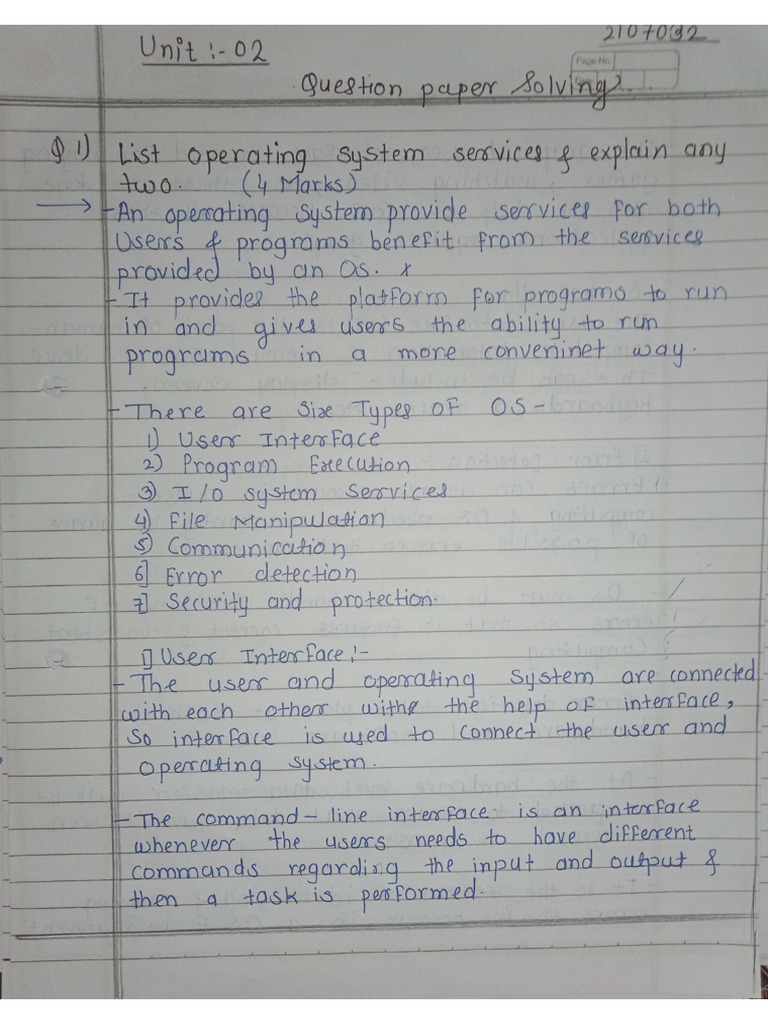 2107092
Unit :- 02
Page No
Question paper Solving.
Q 1) List operating system services & explain any
two. (4 Marks)
→ - An operating system provide services for both
Users & programs benefit from the services
provided by an Os. x
- It provides the platform for programs to run
in and gives users the ability to run
programs in a more conveninet way.
- There are Size Types OF OS -
1) User Interface
2) Program Execution
3) I/O system Services
4) File Manipulation
5) Communication
6] Error detection
7] Security and protection.
1] User Interface :-
- The user and operating system are connected
with each other withe the help of interface,
So interface is used to connect the user and
operating system.
- The command - line interface is an interface
whenever the users needs to have different
commands regarding the input and output &
then a task is performed.